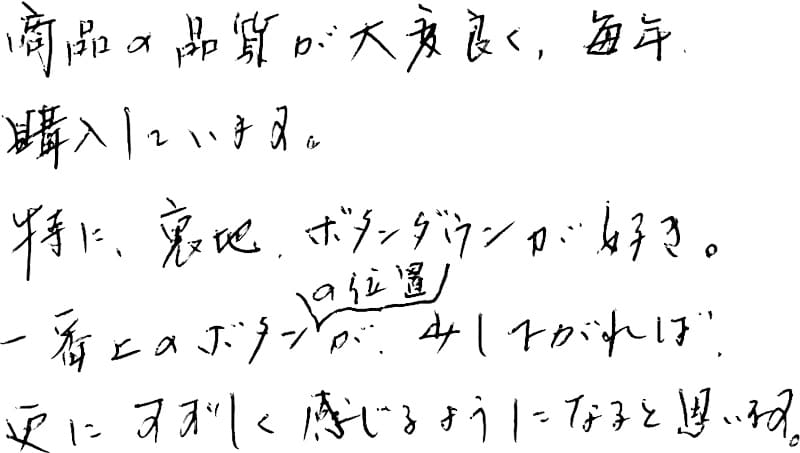 商品の品質が大変良く、毎年
購入しています。
特に、裏地、ボタンダウンが好き。
の位置
一番上のボタンが、少し下がれば、
更にすずしく感じるようになると思います。